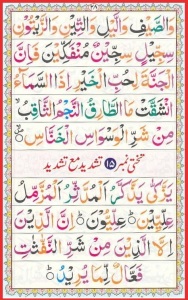 وَالصَّيْفِ وَالَّيْلِ وَالتِّيْنِ وَالزَّيْتُوْنِ
سِجِّيْلٍ سِجِّيْنٌ مُنْفَكِّيْنَ فَاِنَّ
الْجَنَّةَ لِحُبِّ الْخَيْرِ اِذَا السَّمَآءُ
انْشَقَّتْ مَا الطَّارِقُ النَّجْمُ الثَّاقِبُ
مِنْ شَرِّ الْوَسْوَاسِ الْخَنَّاسِ
تختی نمبر ۱۵ تشدید مع تشدید
يَزَّكّٰى يَذَّكَّرُ الْمُدَّثِّرُ الْمُزَّمِّلُ
عِلِّيِّيْنَ عِلِّيُّوْنَ اِنَّ الَّذِيْنَ
اِلَّا الَّذِيْنَ مِنْ شَرِّ النَّفّٰثٰتِ
فَعَّالٌ لِّمَا يُرِيْدُ